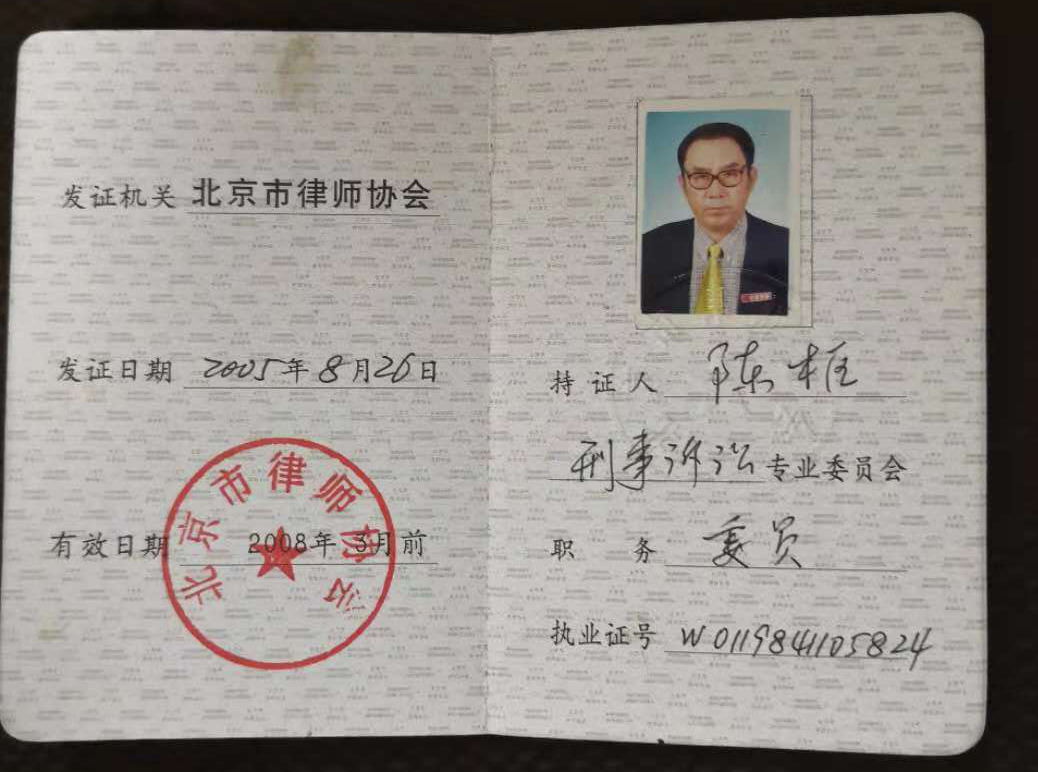 发证机关 北京市律师协会
发证日期 2005年8月26日
有效日期 2008年3月前
北京市律师协会
持证人 陈
刑事诉讼专业委员会
职务 委员
执业证号 W0119841105824